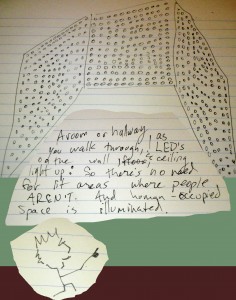 A room or hallway, as
you walk through, LED's
on the wall & ceiling
light up. So there's no need
for lit areas where people
AREN'T. And human-occupied
space is illuminated.